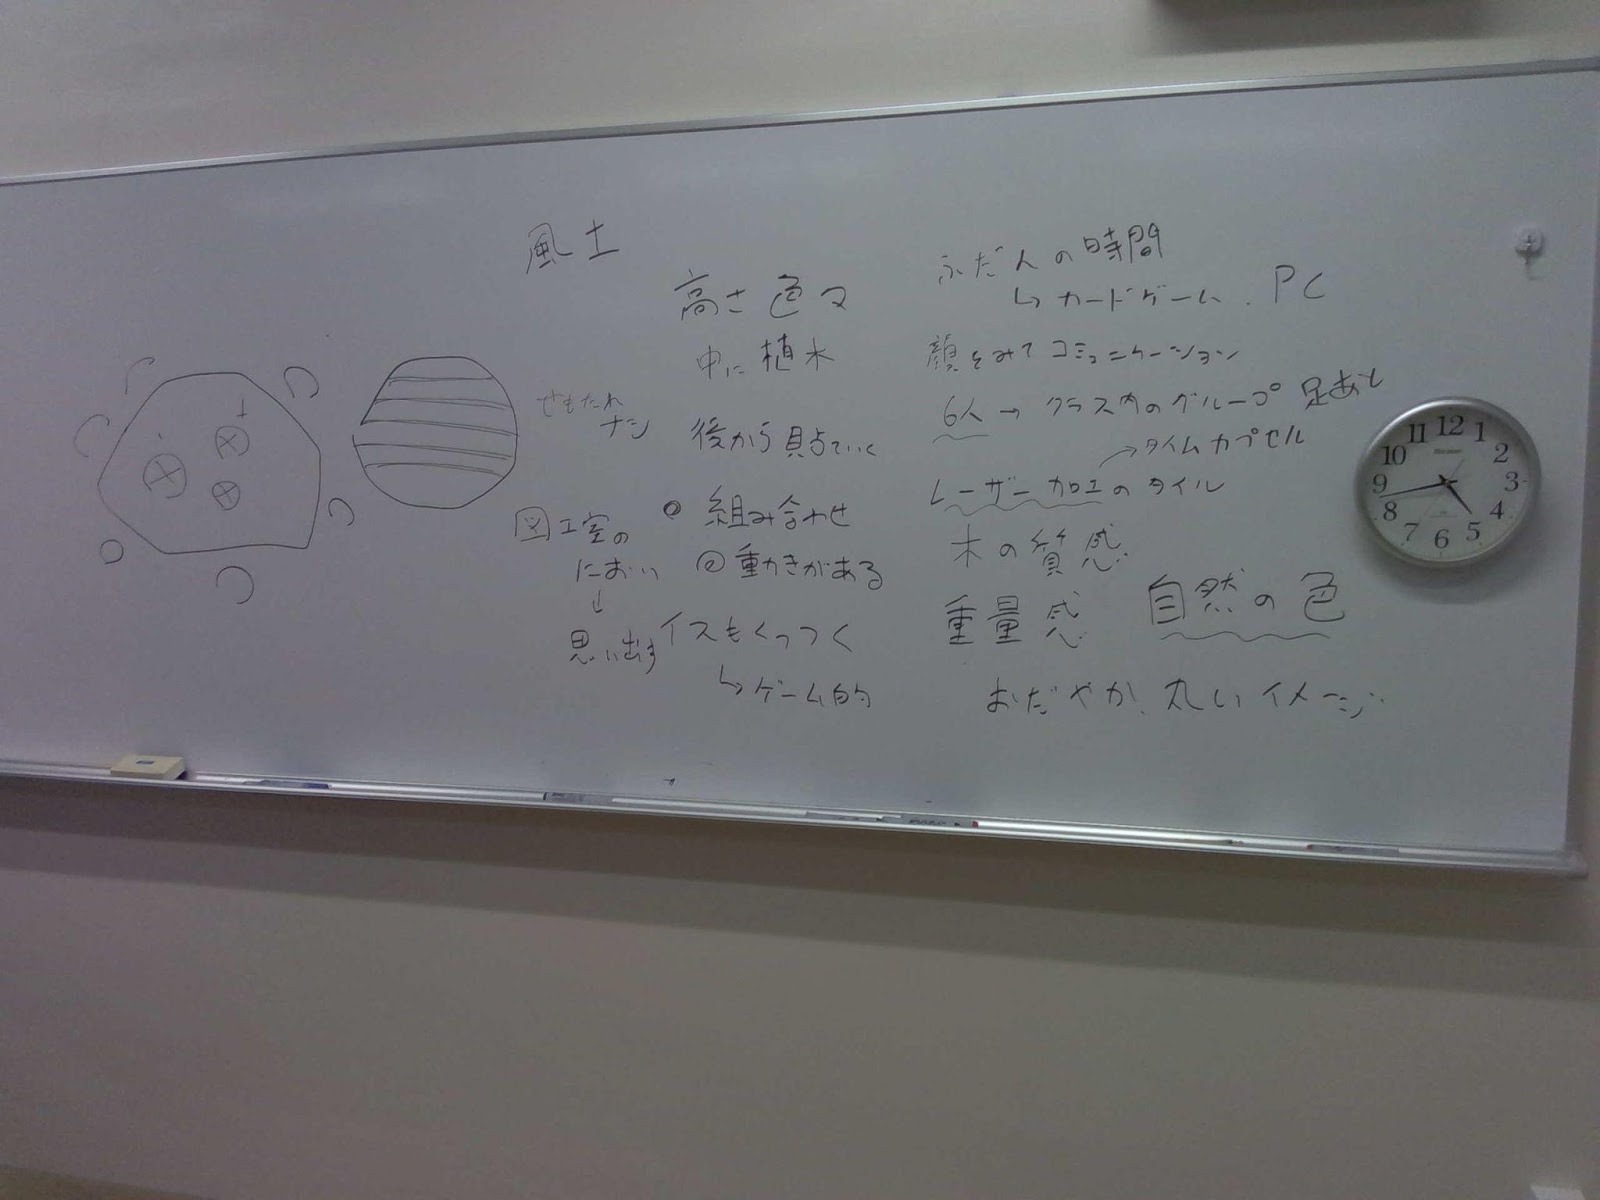 風土
高さ色々
中に植木
せもたれ
ナシ
後から貝占ていく
組み合わせ
動きがある
図工室の
におい
↓
思い出す
イスもくっつく
↳ゲーム的
ふだんの時間
↳カードゲーム、PC
顔をみてコミュニケーション
6人→クラス内のグループ 足あと
→タイムカプセル
レーザー加工のタイル
木の質感
重量感
自然の色
おだやか、丸いイメージ
12
1
2
3
4
5
6
7
8
9
10
11